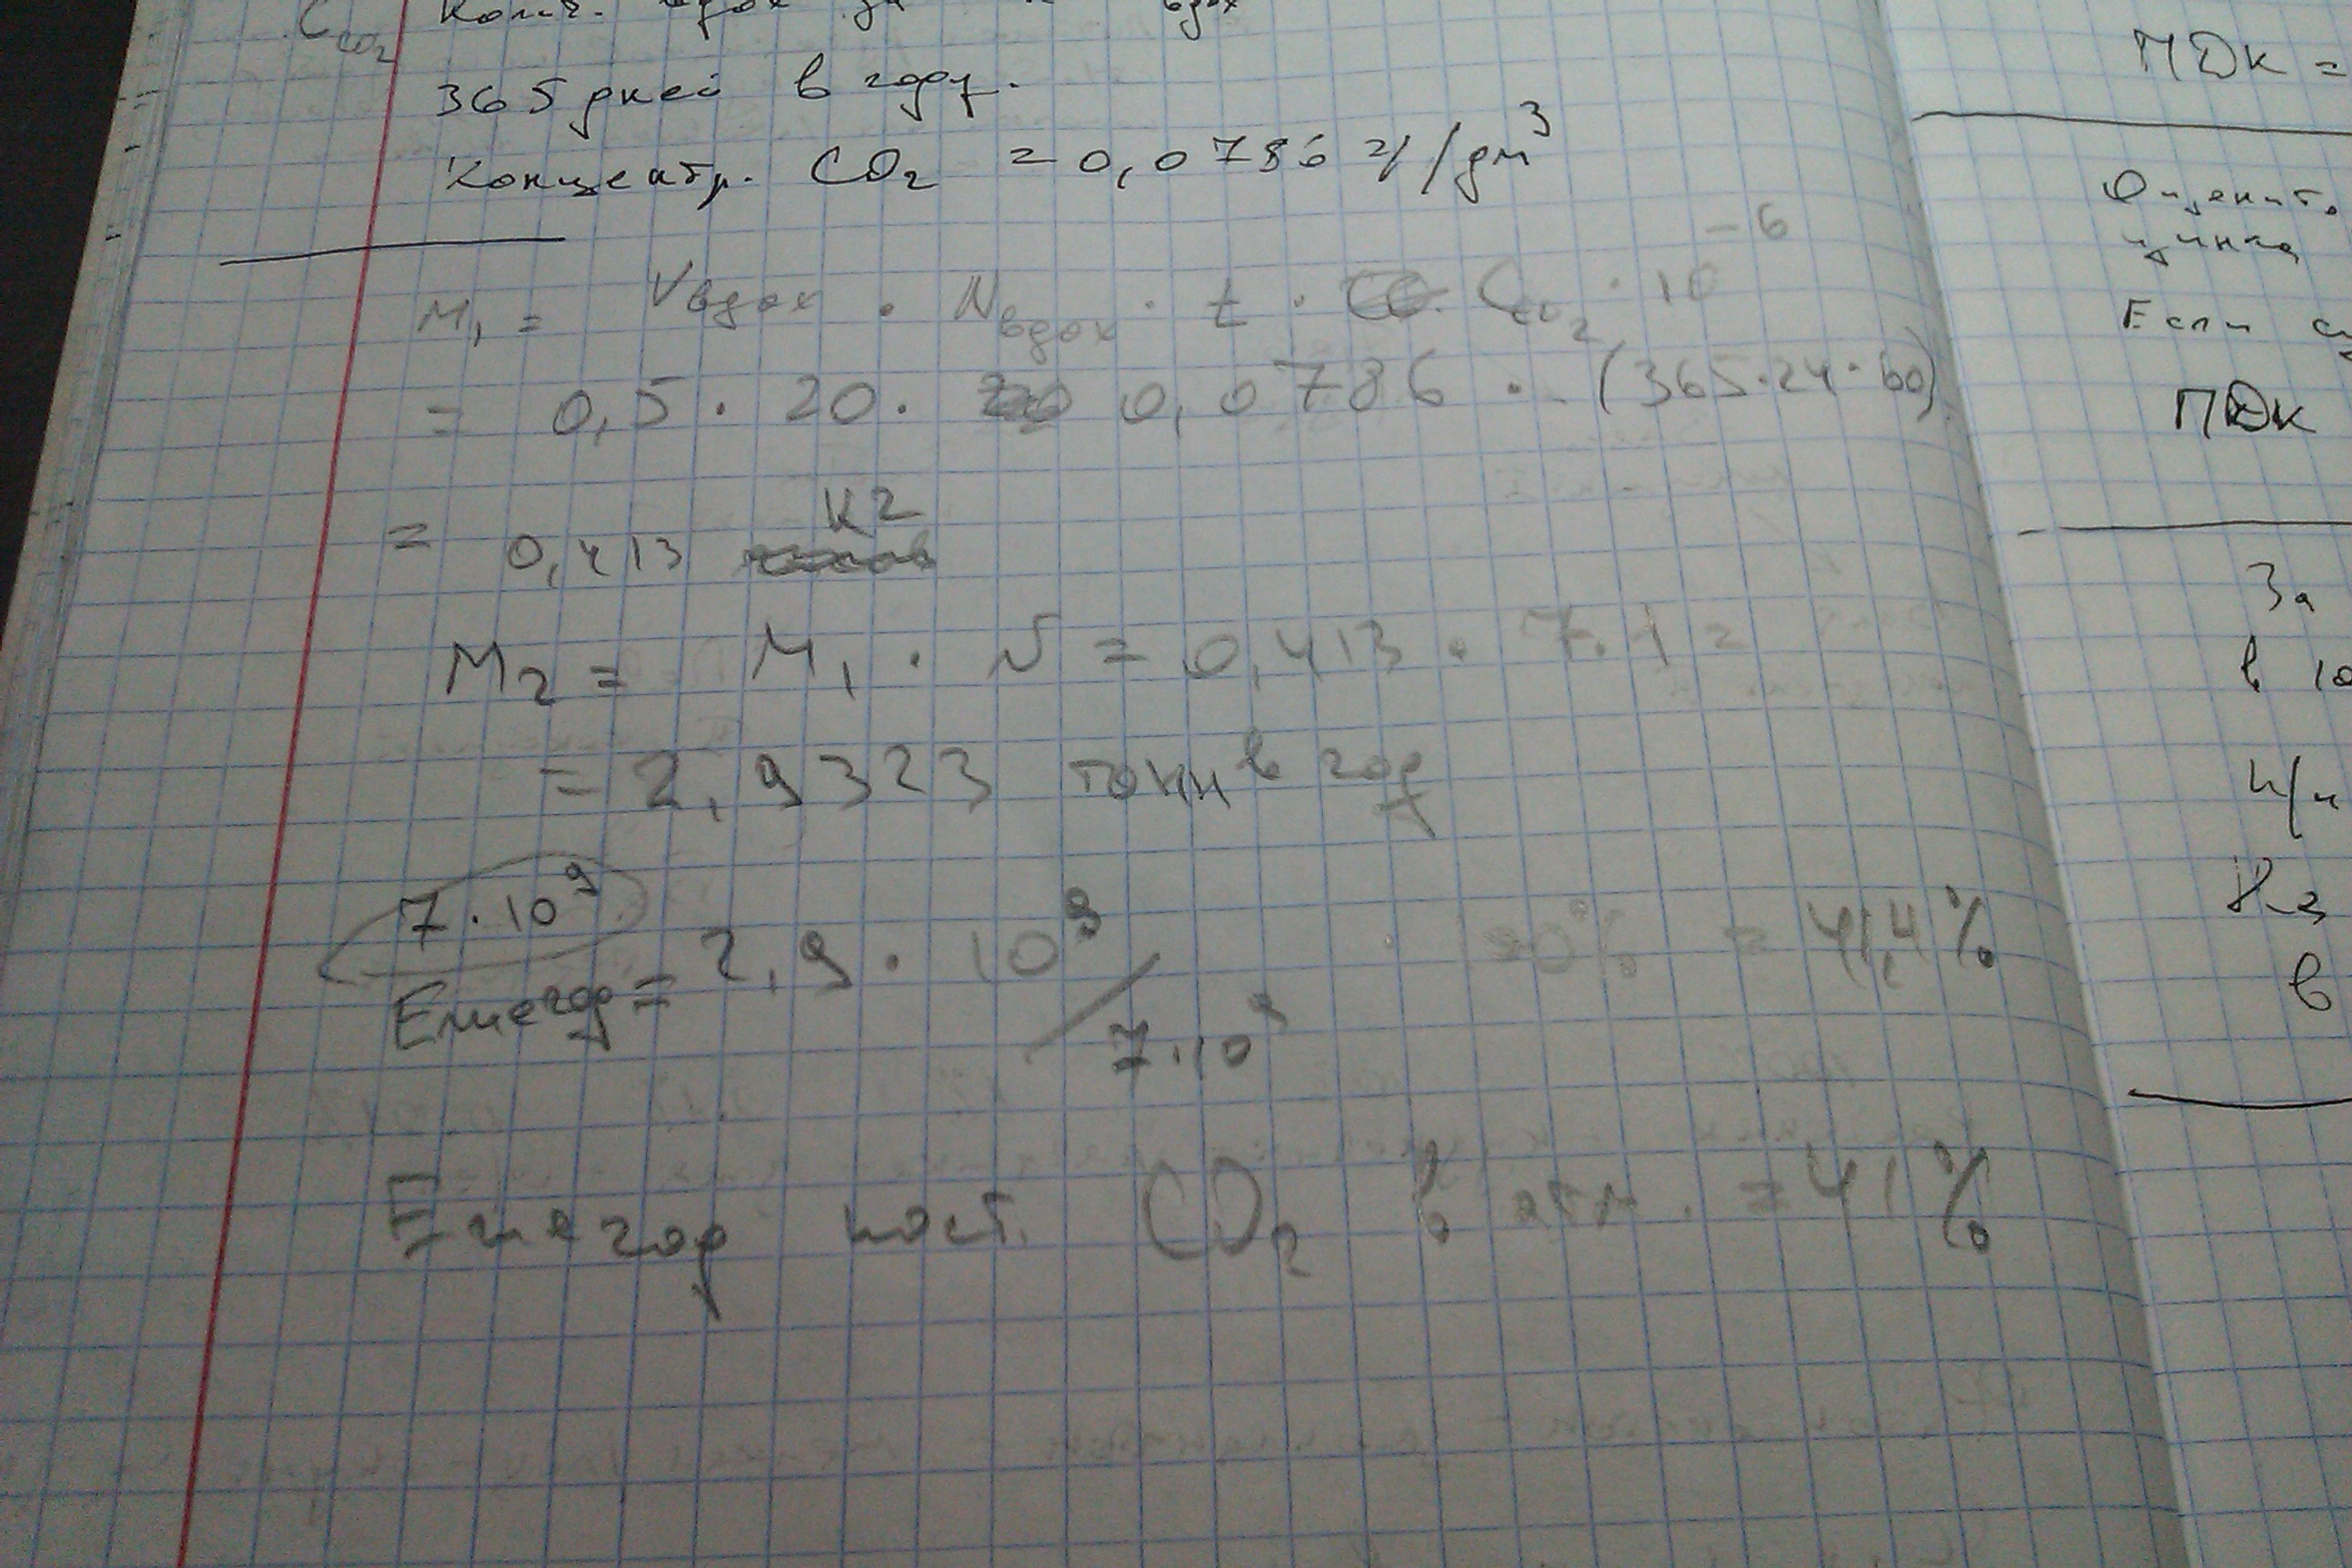 C CO2
365 дней в году.
Концентр. CO2 = 0,0786 г/дм³
M1 = Vвдох · Nвдох · t · C CO2 · 10⁻⁶
= 0,5 · 20 · 0,0786 · (365·24·60)
= 0,413 кг
M2 = M1 · N = 0,413 · 7.1 =
= 2,9323 тонн в год
7·10⁹
Ежегод = 2,9 · 10⁹ / 7·10⁹
= 41,4%
Ежегод пост. CO2 в атм. = 41%
ПДК =
Оценить
цинка
Если
ПДК
За
в 10
Из
в